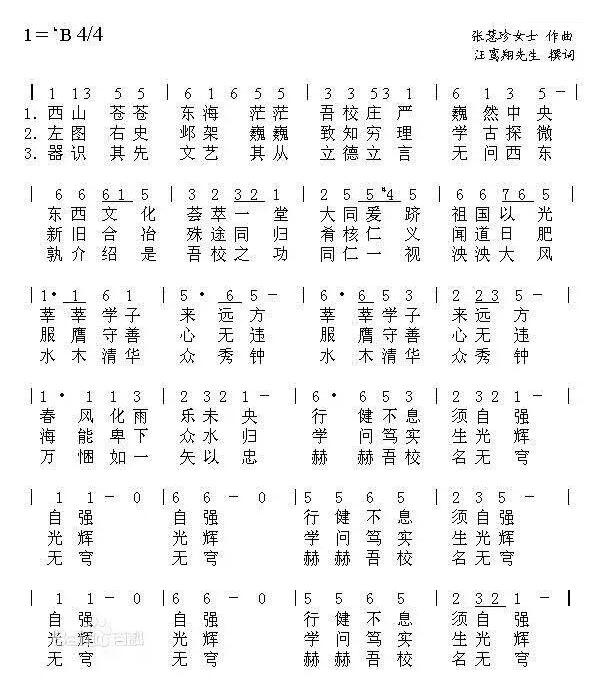 1=♭B 4/4
张慧珍女士 作曲
汪鸾翔先生 撰词
| 1 13 5 5 | 6 1 6 5 5 | 3 3 53 1 | 6 1 3 5 - |
1. 西山 苍苍 东海 茫茫 吾校庄严 巍然中央
2. 左图 右史 邺架 巍巍 致知穷理 学古探微
3. 器识 其先 文艺 其从 立德立言 无问西东
| 6 6 61 5 | 3 2 32 1 | 2 5 5♯4 5 | 6 6 76 5 |
东西文化 荟萃一堂 大同爰跻 祖国以光
新旧合冶 殊途同归 肴核仁义 闻道日肥
孰介绍是 吾校之功 同仁一视 泱泱大风
| 1· 1 6 1 | 5· 6 5 - | 6· 6 5 3 | 2 23 5 - |
莘莘学子 来远方 莘莘学子 来远方
服膺守善 心无违 服膺守善 心无违
水木清华 众秀钟 水木清华 众秀钟
| 1· 1 1 3 | 2 32 1 - | 6· 6 5 3 | 2 32 1 - |
春风化雨 乐未央 行健不息 须自强
海能卑下 众水归 学问笃实 生光辉
万悃如一 矢以忠 赫赫吾校 名无穹
| 1 1 - 0 | 6 6 - 0 | 5 5 6 5 | 2 3 5 - |
自强 自强 行健不息 须自强
光辉 光辉 学问笃实 生光辉
无穹 无穹 赫赫吾校 名无穹
| 1 1 - 0 | 6 6 - 0 | 5 5 6 5 | 2 32 1 - |
自强 自强 行健不息 须自强
光辉 光辉 学问笃实 生光辉
无穹 无穹 赫赫吾校 名无穹